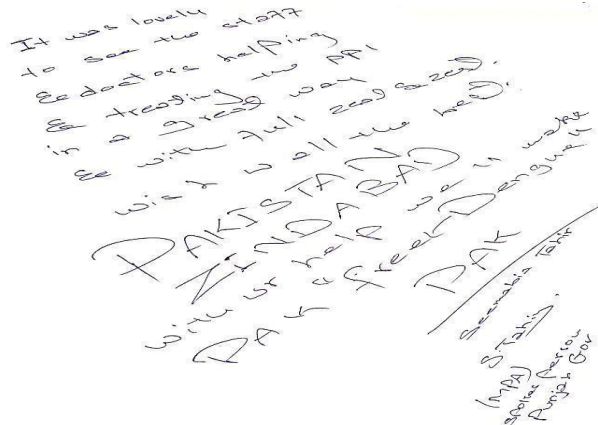 It was lovely
to see the staff
& doctors helping
& treating the ppl
in a great way
& with full zeal & zest.
wish u all the best.
PAKISTAN
ZINDABAD
with ur help we'll make
PAK a free Dengue
PAK
Seemabia Tahir
S Tahir.
(MPA)
Spokes Person
Punjab Gov